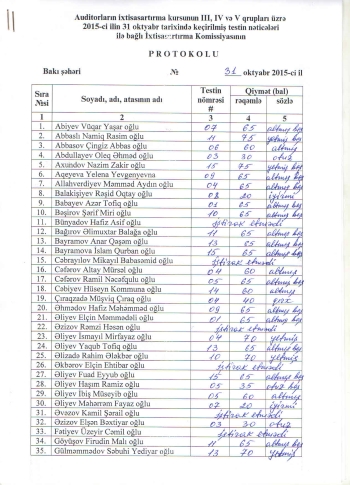 Auditorların ixtisasartırma kursunun III, IV və V qrupları üzrə
2015-ci ilin 31 oktyabr tarixində keçirilmiş testin nəticələri
ilə bağlı İxtisasartırma Komissiyasının
P R O T O K O L U
Bakı şəhəri № 31 oktyabr 2015-ci il
Sıra №si Soyadı, adı, atasının adı Testin nömrəsi # Qiymət (bal)
rəqəmlə sözlə
1 2 3 4 5
1. Abiyev Vüqar Yaşar oğlu 07 65 altmış beş
2. Abbaslı Namiq Rasim oğlu 11 75 yetmiş beş
3. Abbasov Çingiz Abbas oğlu 06 60 altmış
4. Abdullayev Oleq Əhməd oğlu 03 30 otuz
5. Axundov Nazim Zakir oğlu 15 75 yetmiş beş
6. Aqeyeva Yelena Yevgenyevna 09 65 altmış beş
7. Allahverdiyev Məmməd Aydın oğlu 04 65 altmış beş
8. Balakişiyev Rəşid Oqtay oğlu 08 20 iyirmi
9. Babayev Azər Tofiq oğlu 65 altmış beş
10. Bəşirov Şərif Miri oğlu 10 65 altmış beş
11. Bünyadov Hafiz Asif oğlu iştirak etmədi
12. Bağırov Əlimuxtar Balağa oğlu 11 65 altmış beş
13. Bayramov Anar Qəşəm oğlu 13 65 altmış beş
14. Bayramova İslam Qurban oğlu 15 65 altmış beş
15. Cəbrayılov Mikayıl Babasəmid oğlu iştirak etmədi
16. Cəfərov Altay Mürsəl oğlu 04 60 altmış
17. Cəfərov Ramil Nəcəfqulu oğlu 05 65 altmış beş
18. Cəbiyev Hüseyn Kommuna oğlu 14 60 altmış
19. Çıraqzadə Müşviq Çıraq oğlu 04 40 qırx
20. Əhmədov Hafiz Məhəmməd oğlu 09 65 altmış beş
21. Əliyev Elçin Məmmədəli oğlu 01 65 altmış beş
22. Əzizov Rəmzi Həsən oğlu iştirak etmədi
23. Əliyev İsmayıl Mirfayaz oğlu 04 70 yetmiş
24. Əliyev Yaqub Tofiq oğlu 13 65 altmış beş
25. Əlizadə Rahim Ələkbər oğlu 10 70 yetmiş
26. Əkbərov Elçin Ehtibar oğlu iştirak etmədi
27. Əliyev Fuad Eyyub oğlu 65 altmış beş
28. Əliyev Haşım Ramiz oğlu 05 35 otuz beş
29. Əliyev İbiş Müseyib oğlu 05 60 altmış
30. Əliyev Məhərrəm Fayaz oğlu 07 20 iyirmi
31. Əvəzov Kamil Şərail oğlu iştirak etmədi
32. Əzizov Elşən Bəxtiyar oğlu 03 30 otuz
33. Fətiyev Üzeyir Cəmil oğlu iştirak etmədi
34. Göyüşov Firudin Malı oğlu 11 65 altmış beş
35. Gülməmmədov Səbuhi Yediyar oğlu 13 70 yetmiş